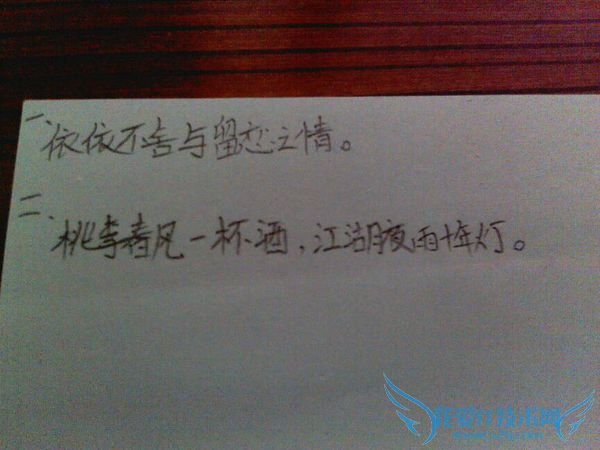 一、
依依不舍与留恋之情。
二、
桃李春风一杯酒，江湖夜雨十年灯。